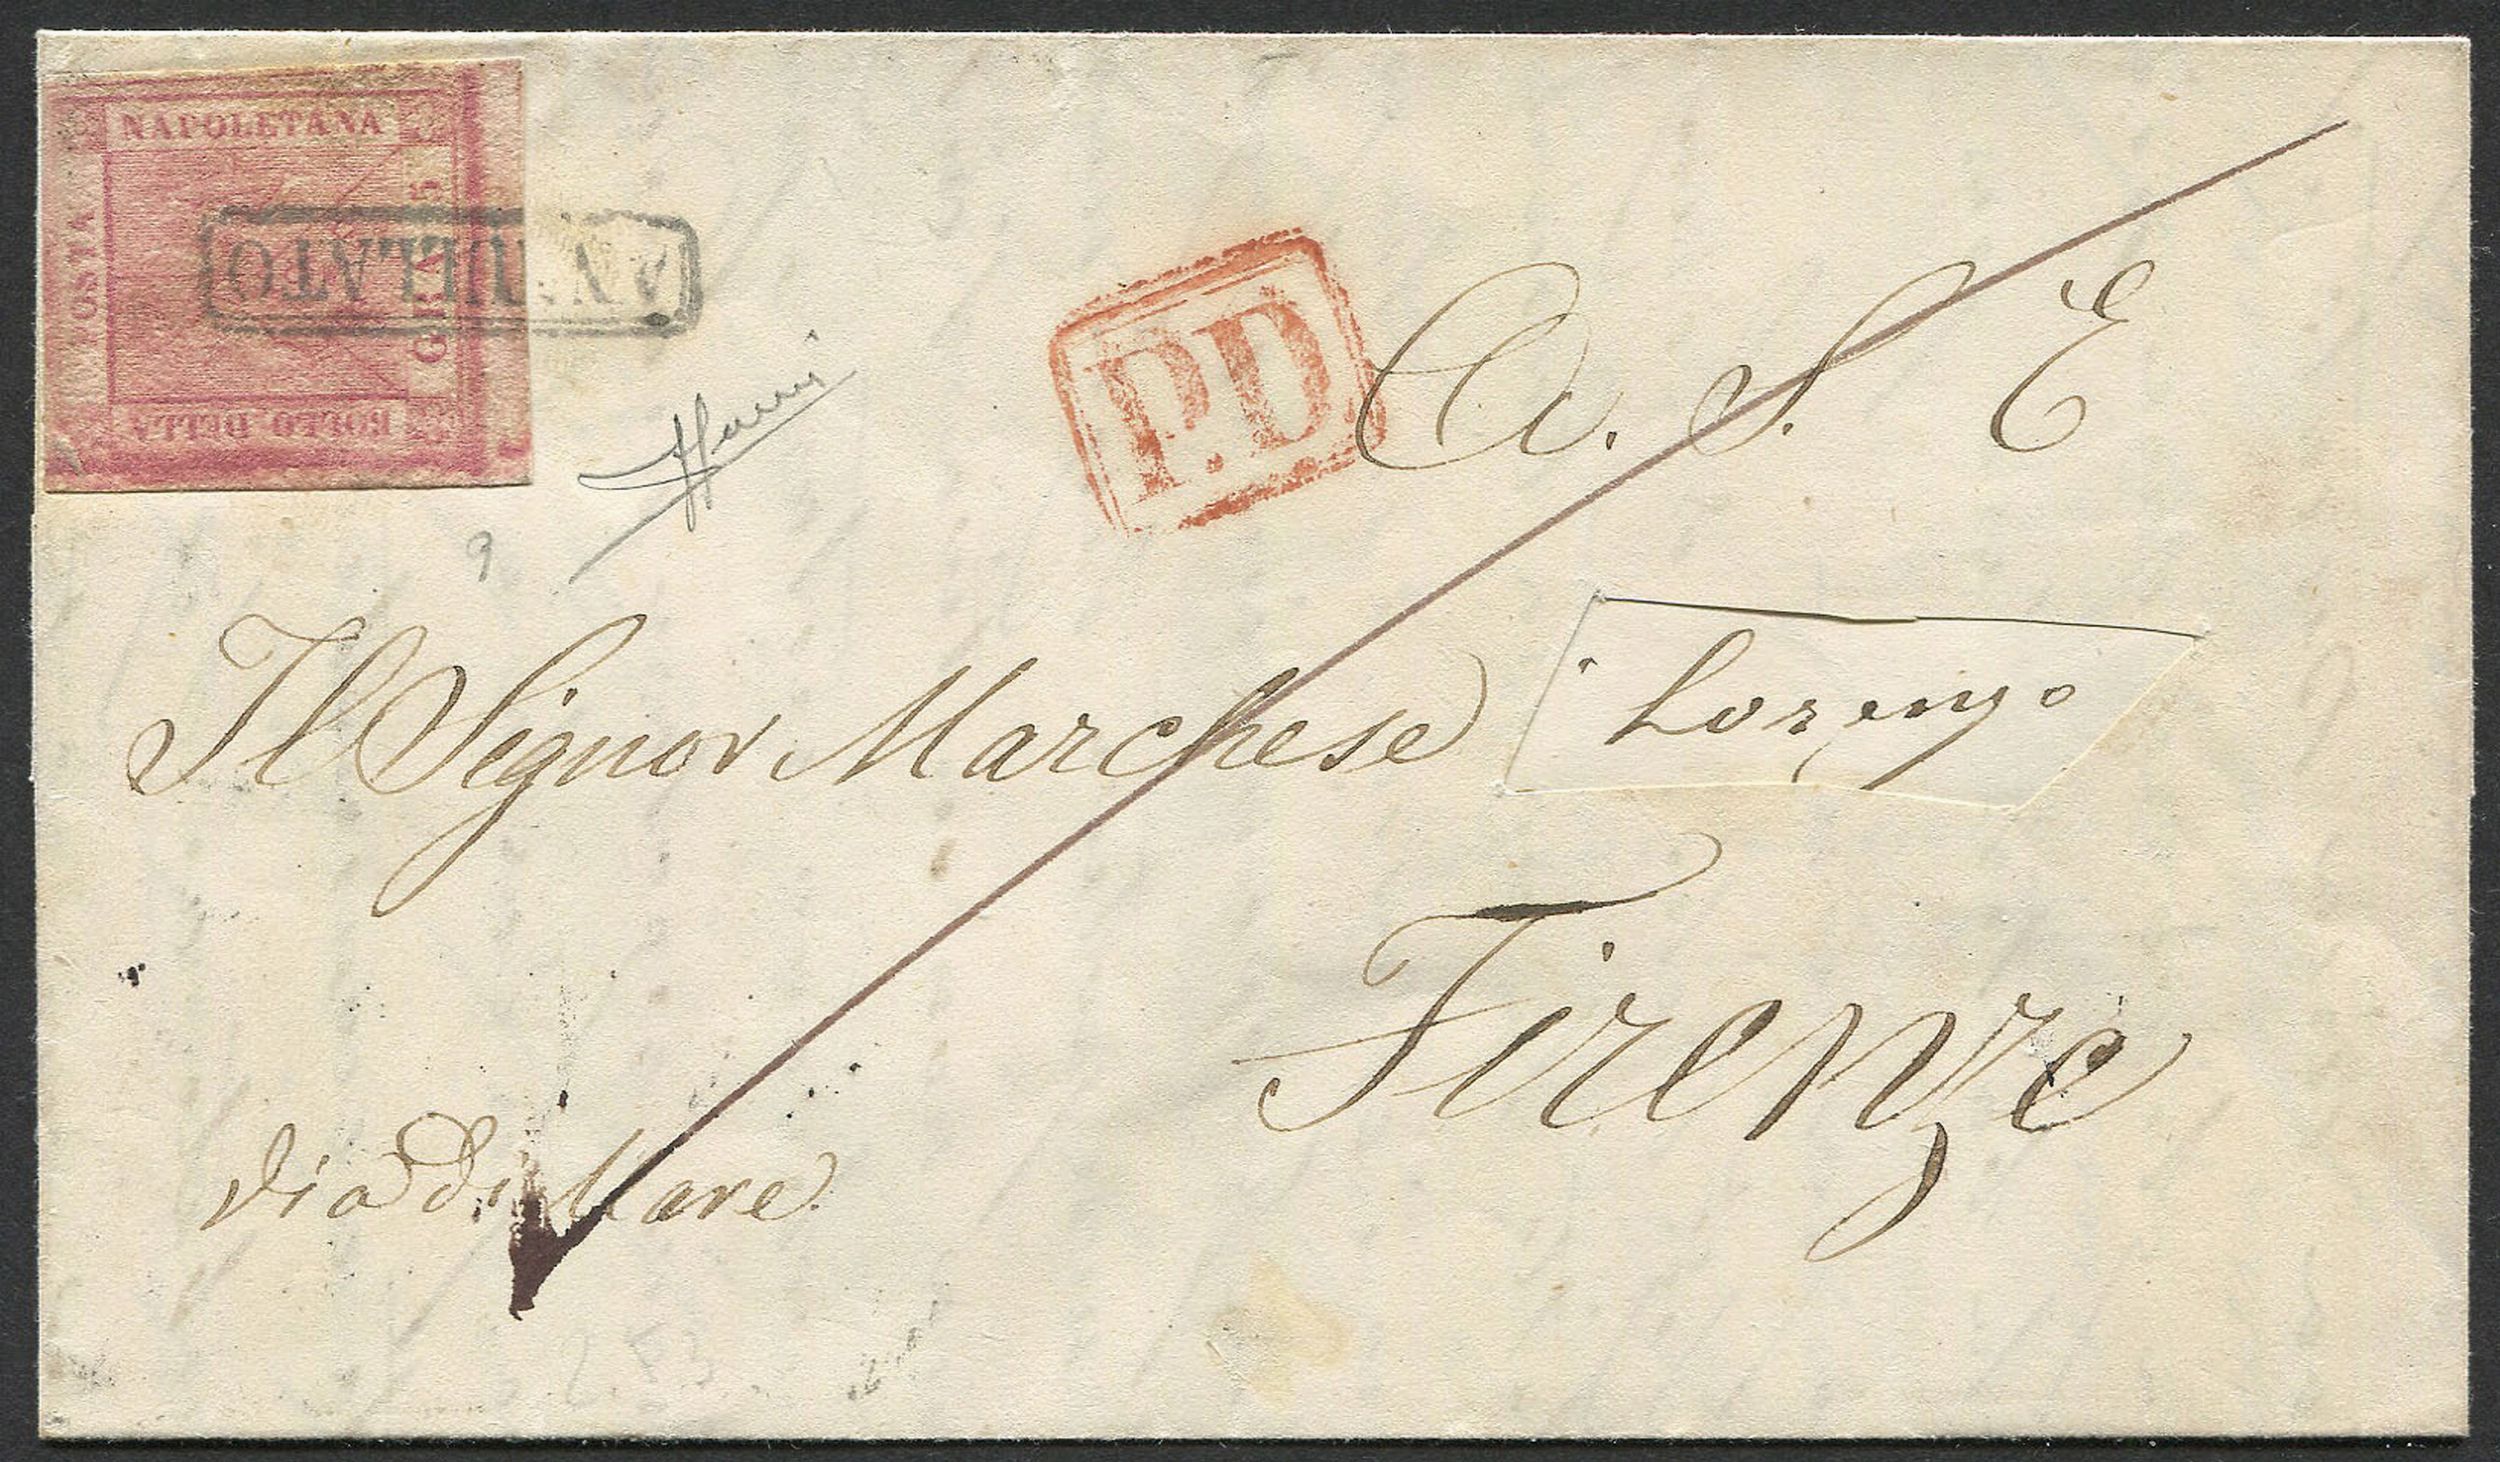 NAPOLETANA
POSTA
GRA 5
BOLLO DELLA
ANNULLATO
P.D
A. S. E
9
Il Signor Marchese Lorenzo
Firenze
Via di Mare